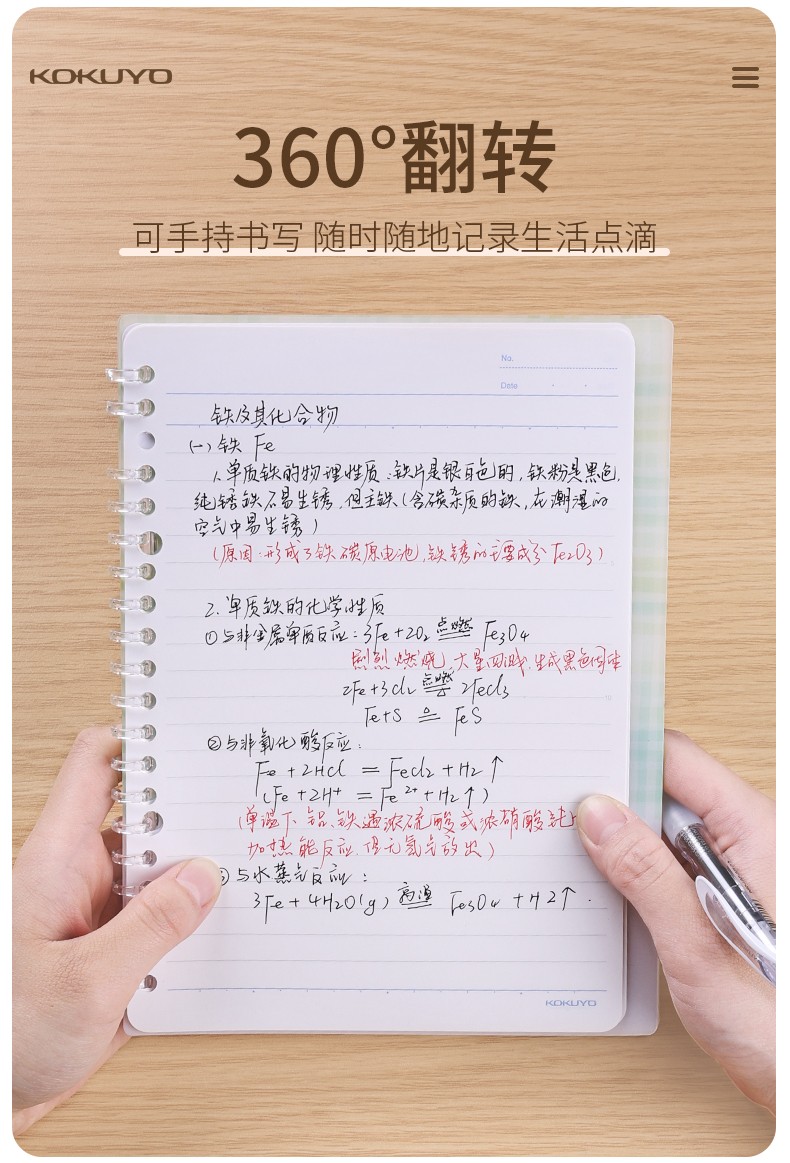 KOKUYO
360°翻转
可手持书写 随时随地记录生活点滴
No.
Date
铁及其化合物
(一) 铁 Fe
1. 单质铁的物理性质:铁片是银白色的,铁粉是黑色,
纯锈铁不易生锈,但生铁(含碳杂质的铁,在潮湿的
空气中易生锈)
(原因:形成了铁碳原电池,铁锈的主要成分Fe2O3)
2. 单质铁的化学性质
①与非金属单质反应:3Fe+2O2 点燃 Fe3O4
剧烈燃烧,大量四溅,生成黑色固体
2Fe+3Cl2 点燃 2FeCl3
Fe+S △ FeS
②与非氧化酸反应:
Fe + 2HCl = FeCl2 + H2↑
(Fe + 2H+ = Fe2+ + H2↑)
(常温下铝、铁遇浓流酸或浓硝酸钝
加热能反应,但无氢气放出)
与水蒸气反应:
3Fe + 4H2O(g) 高温 Fe3O4 + H2↑.
KOKUYO